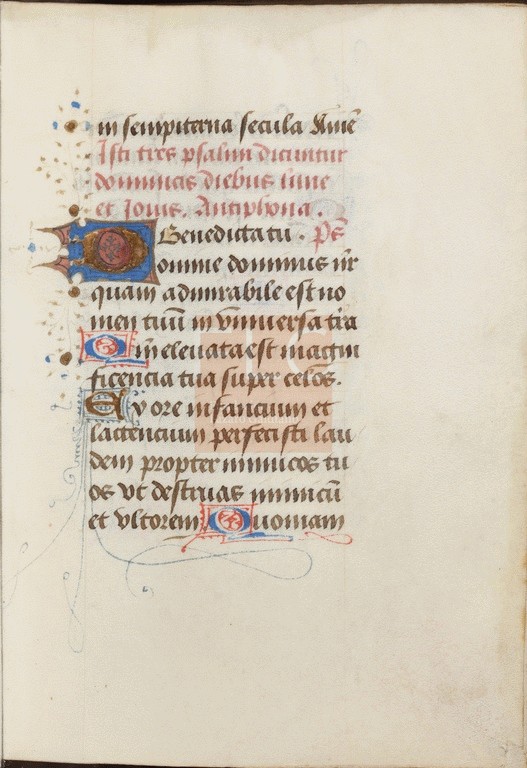 in sempiterna secula Ame̅
Isti tres psalmi dicuntur
dominicis diebus lune
et Iouis. Antiphona.
Benedicta tu. Ps̅
Domine dominus n̅r
quam admirabile est no
men tuu̅ in vniuersa t̅ra
Qm̅ eleuata est magni
ficencia tua super celos.
Ex ore infancium et
lactencium perfecisti lau
dem propter inimicos tu
os vt destruas inimicu̅
et vltorem Quoniam